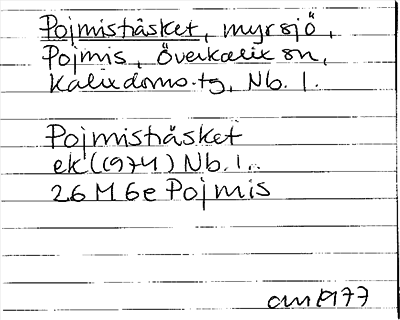 Pojmisträsket, myrsjö,
Pojmis, Överkalix sn,
Kalix doms.tg, Nb. l.
Pojmisträsket
ek (1974) Nb. l.
26 M 6e Pojmis
1977